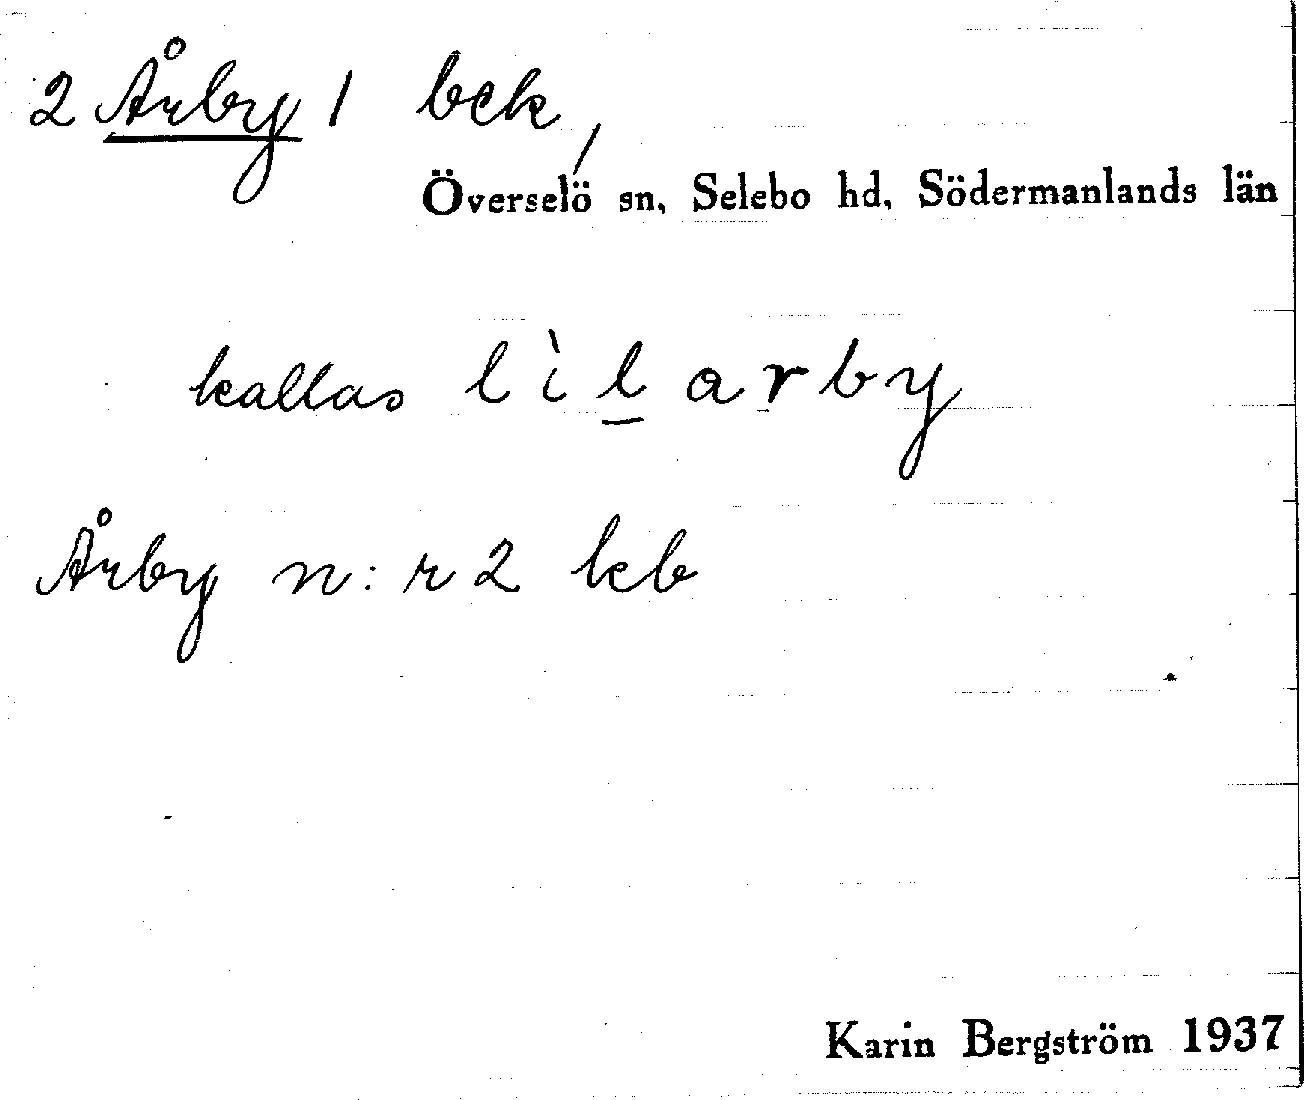 2 Årby 1 bek,
Överselö sn, Selebo hd, Södermanlands län
kallas lìlarby
Årby n:r 2 keb
Karin Bergström 1937